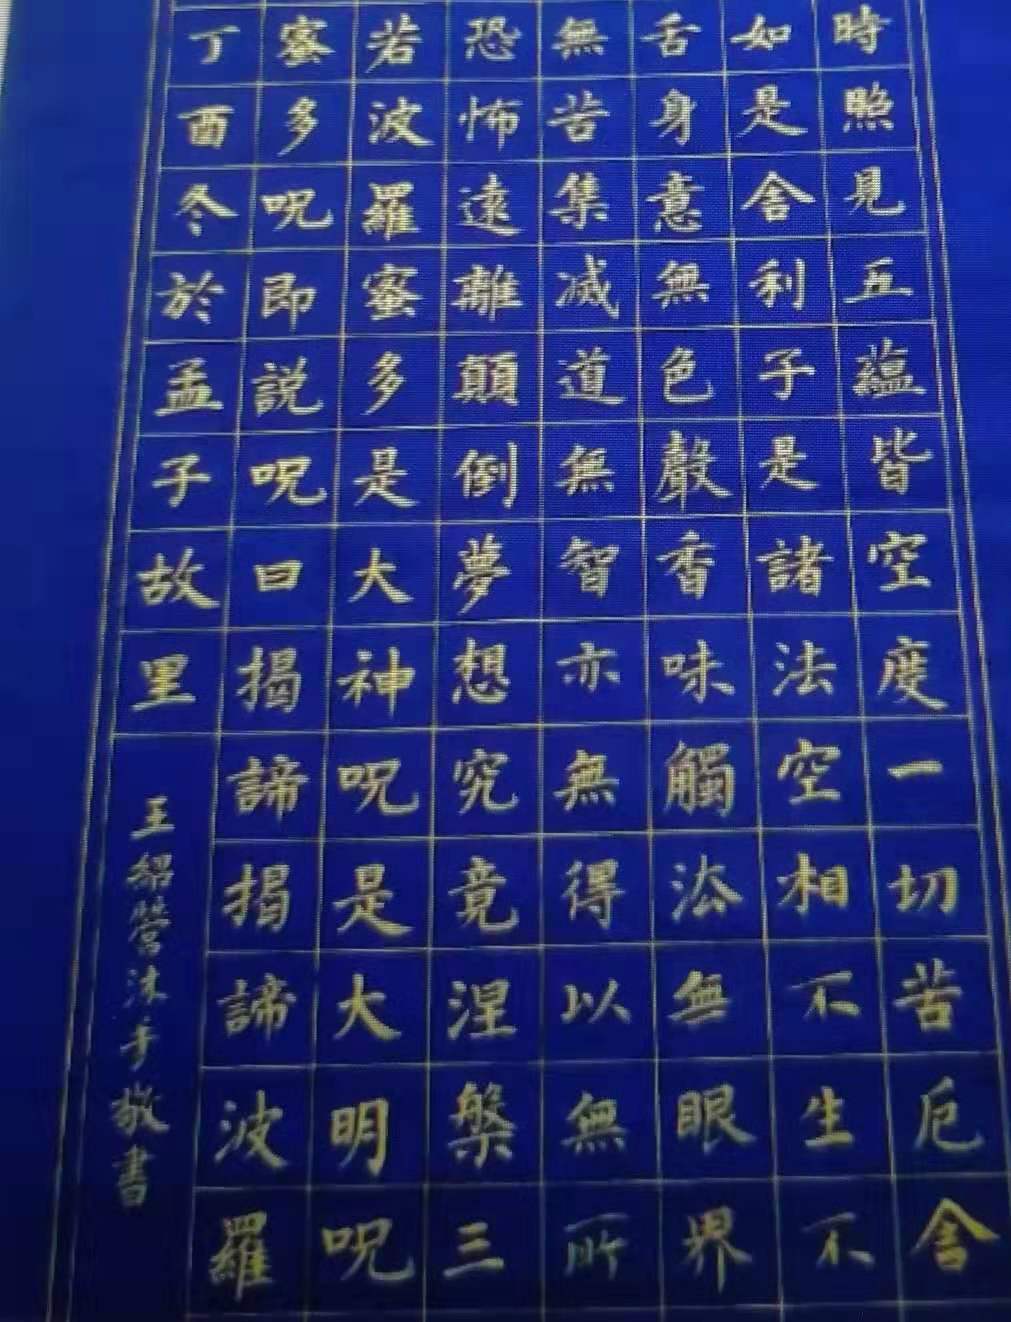 時照見五蘊皆空度一切苦厄舍
如是舍利子是諸法空相不生不
舌身意無色聲香味觸法無眼界
無苦集滅道無智亦無得以無所
恐怖遠離顛倒夢想究竟涅槃三
若波羅蜜多是大神呪是大明呪
蜜多呪即説呪曰揭諦揭諦波羅
丁酉冬於孟子故里
王紹營沐手敬書